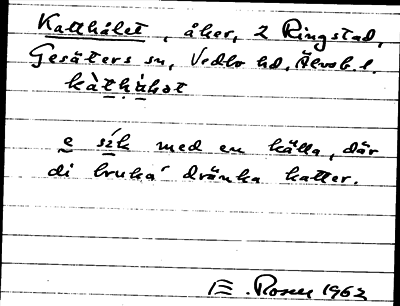 Katthålet, åker, 2 Ringstad,
Gesäters sn, Vedbo hd, Älvsb. l.
kàthùḷət
e sîk med en källa, där
di bruka' dränka katter.
E. Rosell 1962